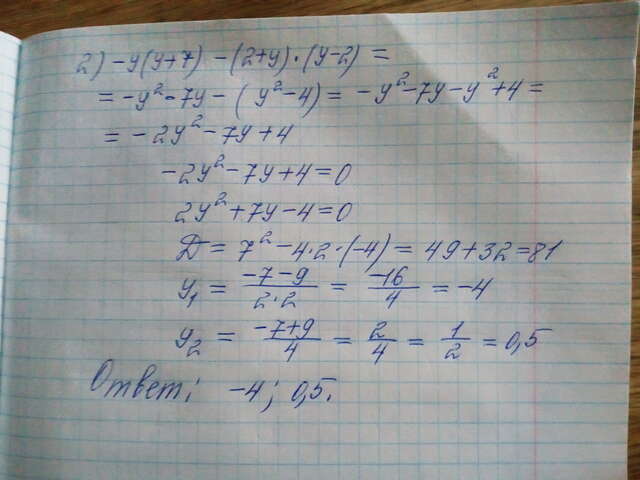 2) -y(y+7) - (2+y)·(y-2) =
= -y² - 7y - (y² - 4) = -y² - 7y - y² + 4 =
= -2y² - 7y + 4
-2y² - 7y + 4 = 0
2y² + 7y - 4 = 0
D = 7² - 4·2·(-4) = 49 + 32 = 81
y₁ = (-7-9)/(2·2) = -16/4 = -4
y₂ = (-7+9)/4 = 2/4 = 1/2 = 0,5
Ответ: -4; 0,5.